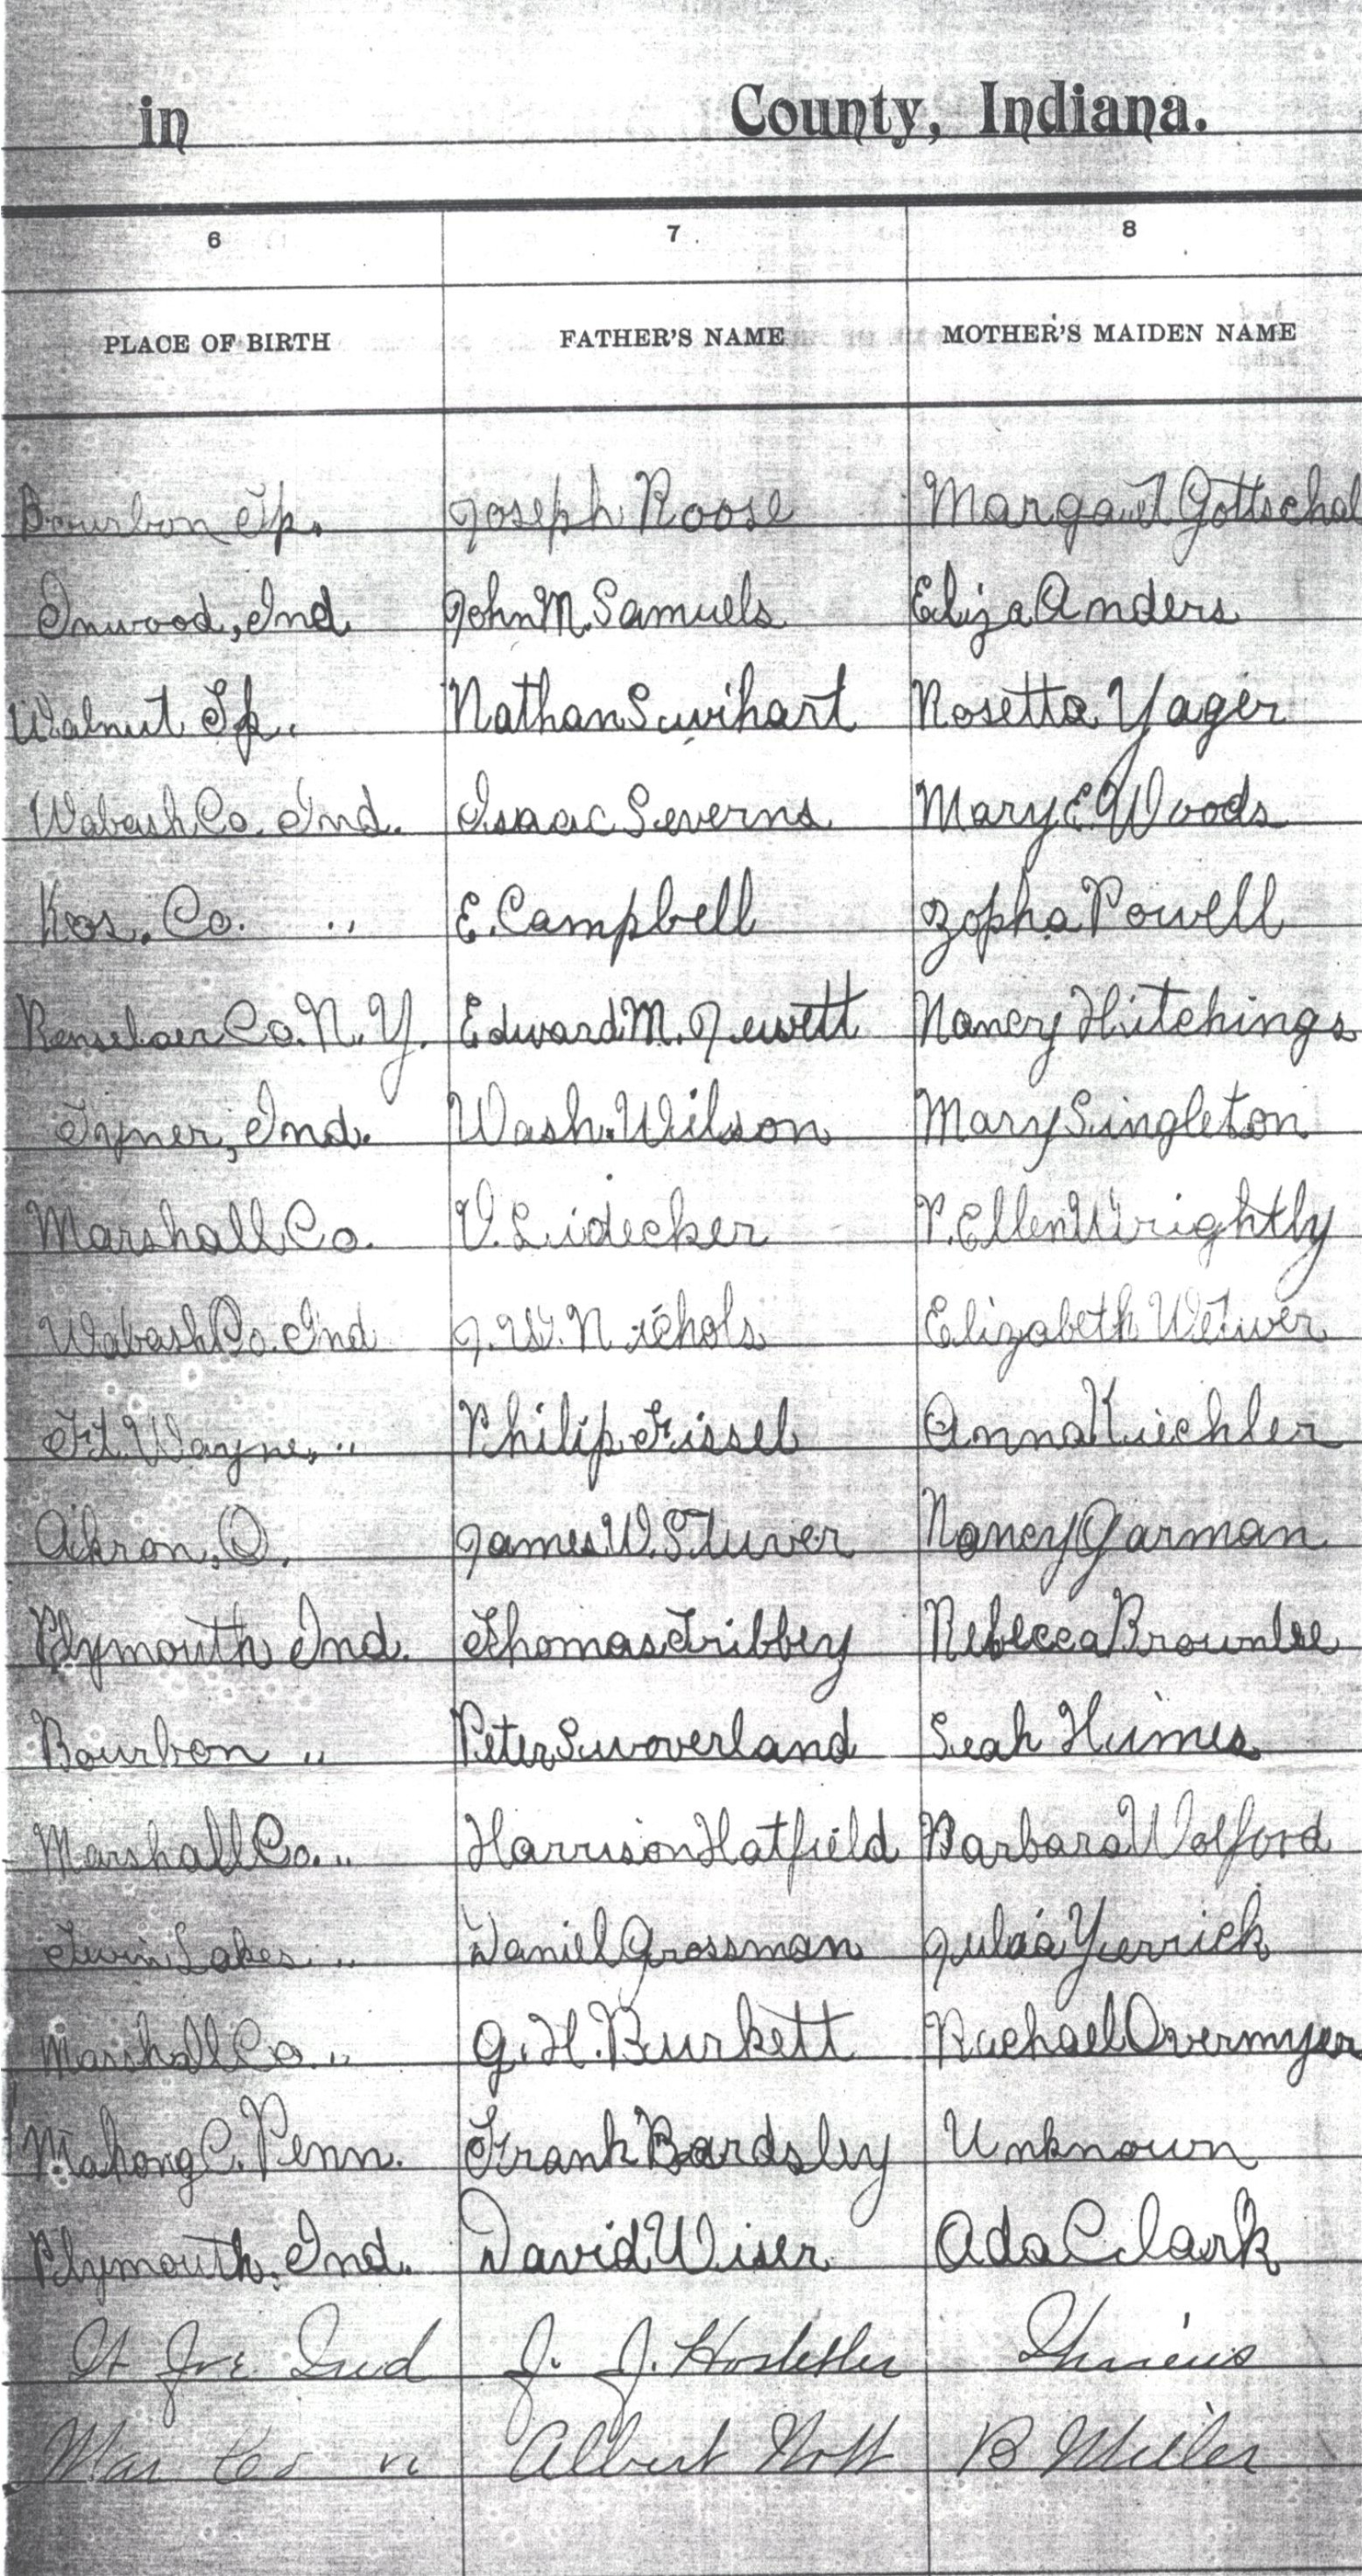 in County, Indiana.
6 7 8
PLACE OF BIRTH FATHER'S NAME MOTHER'S MAIDEN NAME
Bourbon Tp. Joseph Roose Margaret Gottschal
Inwood, Ind John M. Samuels Eliza Anders
Walnut Tp. Nathan Swihart Rosetta Yager
Wabash Co. Ind. Isaac Severns Mary E. Woods
Kos. Co. " E. Campbell Zopha Powell
Renselaer Co. N. Y. Edward M. Jewett Nancy Hutchings
Tyner, Ind. Wash. Wilson Mary Singleton
Marshall Co. V. Lidecker P. Ellen Wrightly
Wabash Co. Ind J. W. Nichols Elizabeth
Ft. Wayne, " Philip Fissel Anna Kuchler
Akron, O. James W. Stuver Nancy Garman
Plymouth Ind. Thomas Tribbey Rebecca Brownlee
Bourbon " Peter Swoverland Leah Himes
Marshall Co. " Harrison Hatfield Barbara Wolford
Twin Lakes " Daniel Grossman Julia Yerrick
Marshall Co. " G. H. Burkett Rachael Overmyer
Penn. Frank Bardsley Unknown
Plymouth, Ind. David Wiser Ada C. Clark
St Joe Ind J. J. Hostetler
Mar Co " Albert B Miller